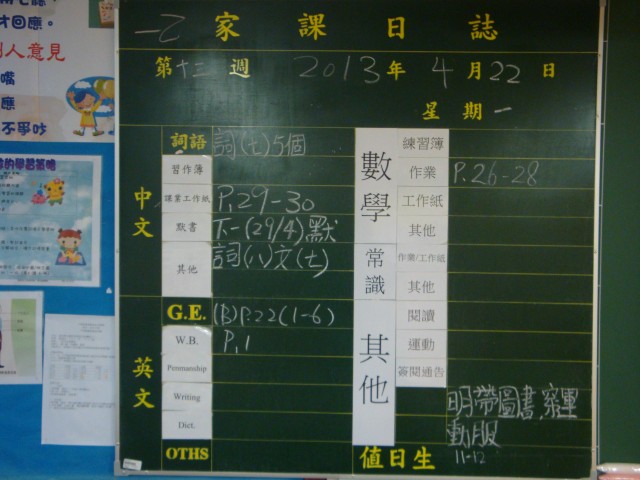 才回應。
別人意見
嘴
應
不爭吵
一乙 家課日誌
第十三週 2013年4月22日
星期一
中文
詞語 詞(七)5個
習作簿
課業工作紙 P.29-30
默書 下一(29/4)默
其他 詞(八)文(七)
英文
G.E. (B)P.22(1-6)
W.B. P.1
Penmanship
Writing
Dict.
OTHS
數學
練習簿
作業 P.26-28
工作紙
其他
常識
作業/工作紙
其他
其他
閱讀
運動
簽閱通告
明帶圖書,穿運
動服
值日生 11-12